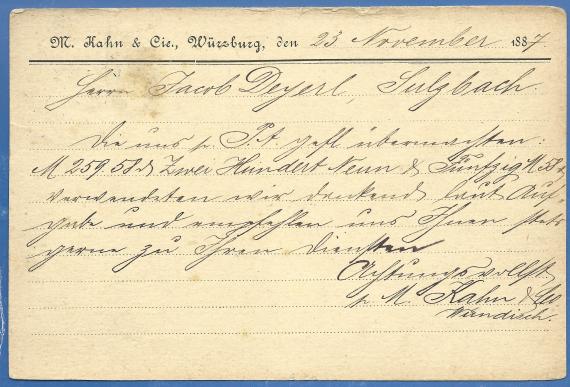 M. Kahn & Cie., Würzburg, den 23 November 1887
Herrn Jacob Deyerl, Sulzbach.
Die uns p. P.A. gefl übermachten:
M 259.58 d Zwei Hundert Neun & Fünfzig M 58 d
verwendeten wir dankend laut Auf-
gabe und empfehlen uns Ihnen stets
gerne zu Ihren Diensten
Achtungsvollst
p. M. Kahn & Co